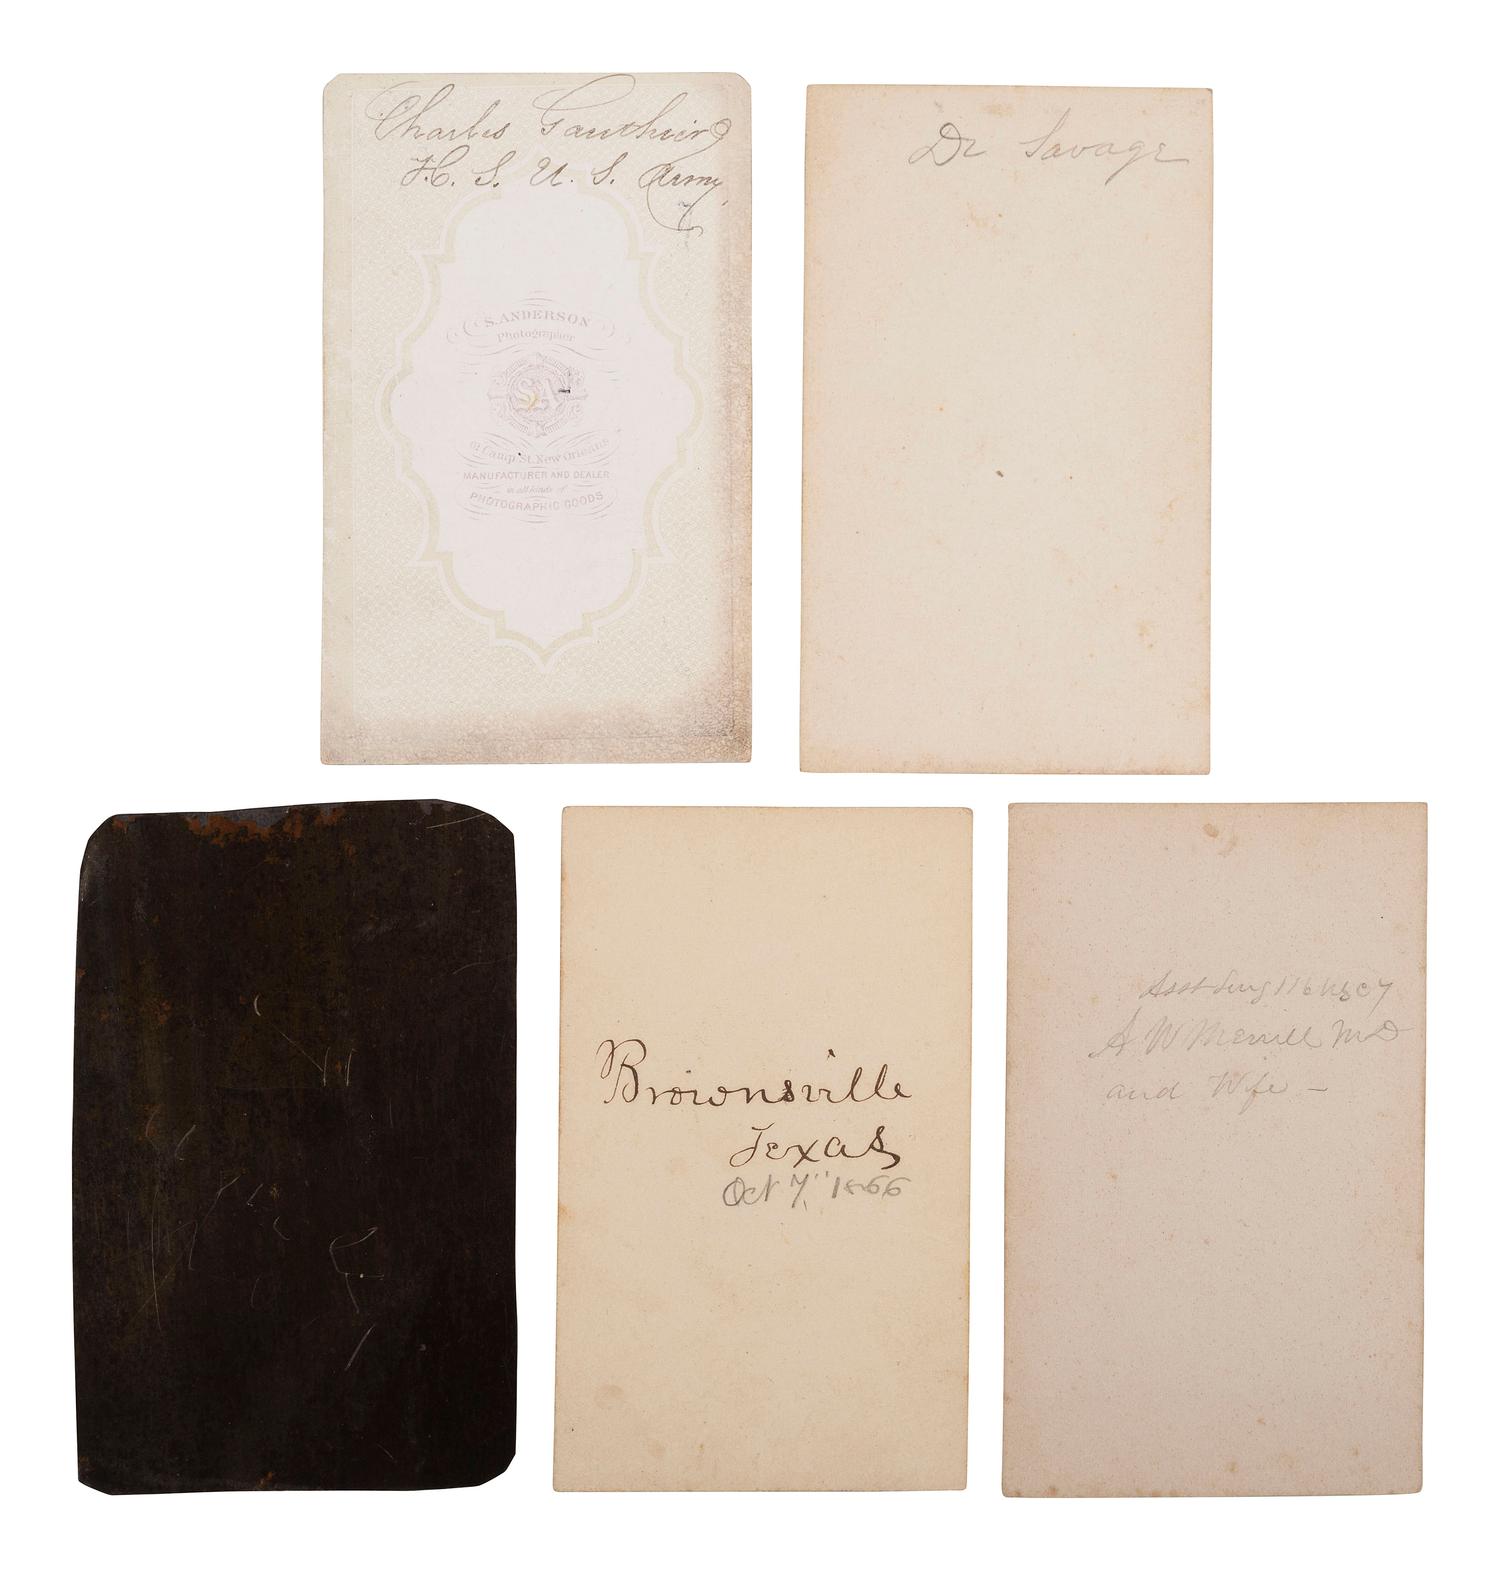 Charles Gauthier
H. S. U. S. Army
S. ANDERSON
Photographer
SA
61 Camp St. New Orleans
MANUFACTURER AND DEALER
in all kinds of
PHOTOGRAPHIC GOODS
Dr Savage
Brownsville
Texas
Oct 7" 1866
Asst Surg 116 USC
A W Merrill MD
and Wife –